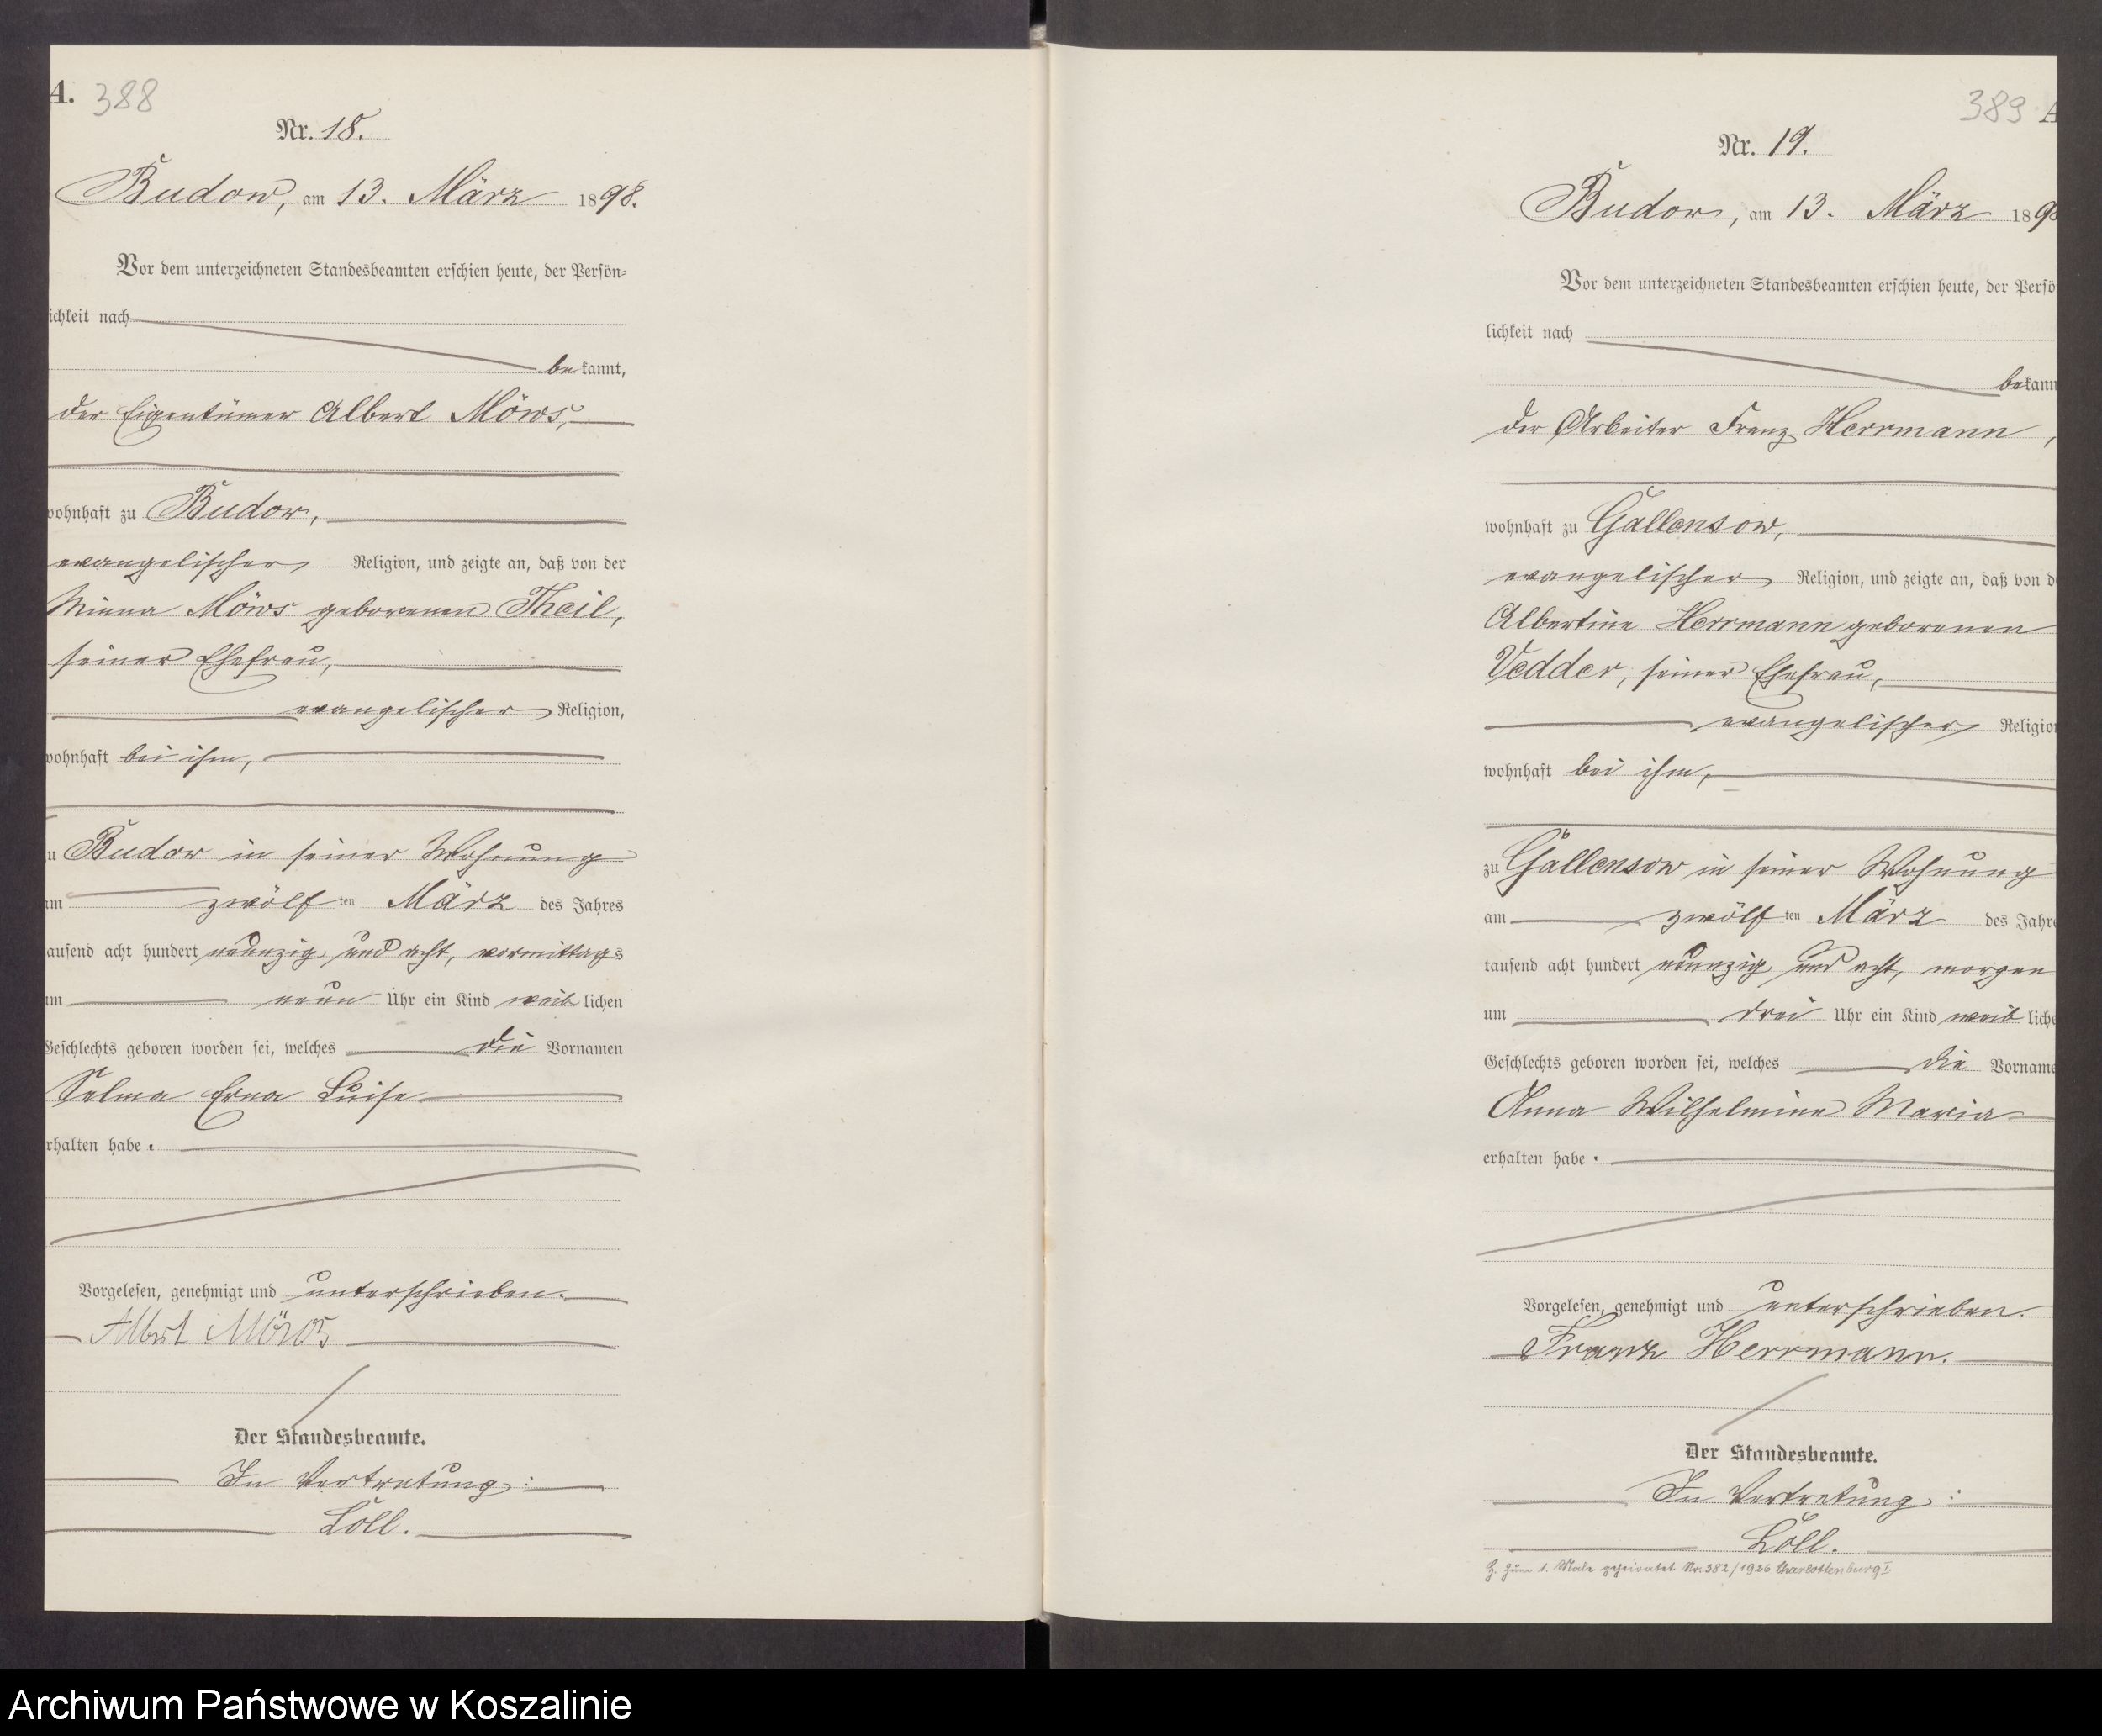 A. 388
Nr. 18.
Budow, am 13. März 1898.
Vor dem unterzeichneten Standesbeamten erschien heute, der Persön-
ichkeit nach
be kannt,
der Eigentümer Albert Möws,
wohnhaft zu Budow,
evangelischer Religion, und zeigte an, daß von der
Minna Möws geborenen Theil,
seiner Ehefrau,
evangelischer Religion,
wohnhaft bei ihm,
u Budow in seiner Wohnung
am zwölf ten März des Jahres
tausend acht hundert neunzig und acht, vormittags
um neun Uhr ein Kind weib lichen
Geschlechts geboren worden sei, welches die Vornamen
Selma Erna Luise
erhalten habe.
Vorgelesen, genehmigt und unterschrieben.
Albert Möws
Der Standesbeamte.
In Vertretung:
Löll.
389 A
Nr. 19.
Budow, am 13. März 1898
Vor dem unterzeichneten Standesbeamten erschien heute, der Persö
lichkeit nach
bekann
der Arbeiter Franz Herrmann,
wohnhaft zu Gallensow,
evangelischer Religion, und zeigte an, daß von d
Albertine Herrmann geborenen
Vedder, seiner Ehefrau,
evangelischer Religion
wohnhaft bei ihm,
zu Gallensow in seiner Wohnung
am zwölf ten März des Jahre
tausend acht hundert neunzig und acht, morgen
um drei Uhr ein Kind weib liche
Geschlechts geboren worden sei, welches die Vorname
Anna Wilhelmine Maria
erhalten habe.
Vorgelesen, genehmigt und unterschrieben.
Franz Herrmann.
Der Standesbeamte.
In Vertretung:
Löll.
G. zum 1. Male geheiratet Nr. 382/1926 Charlottenburg I
Archiwum Państwowe w Koszalinie